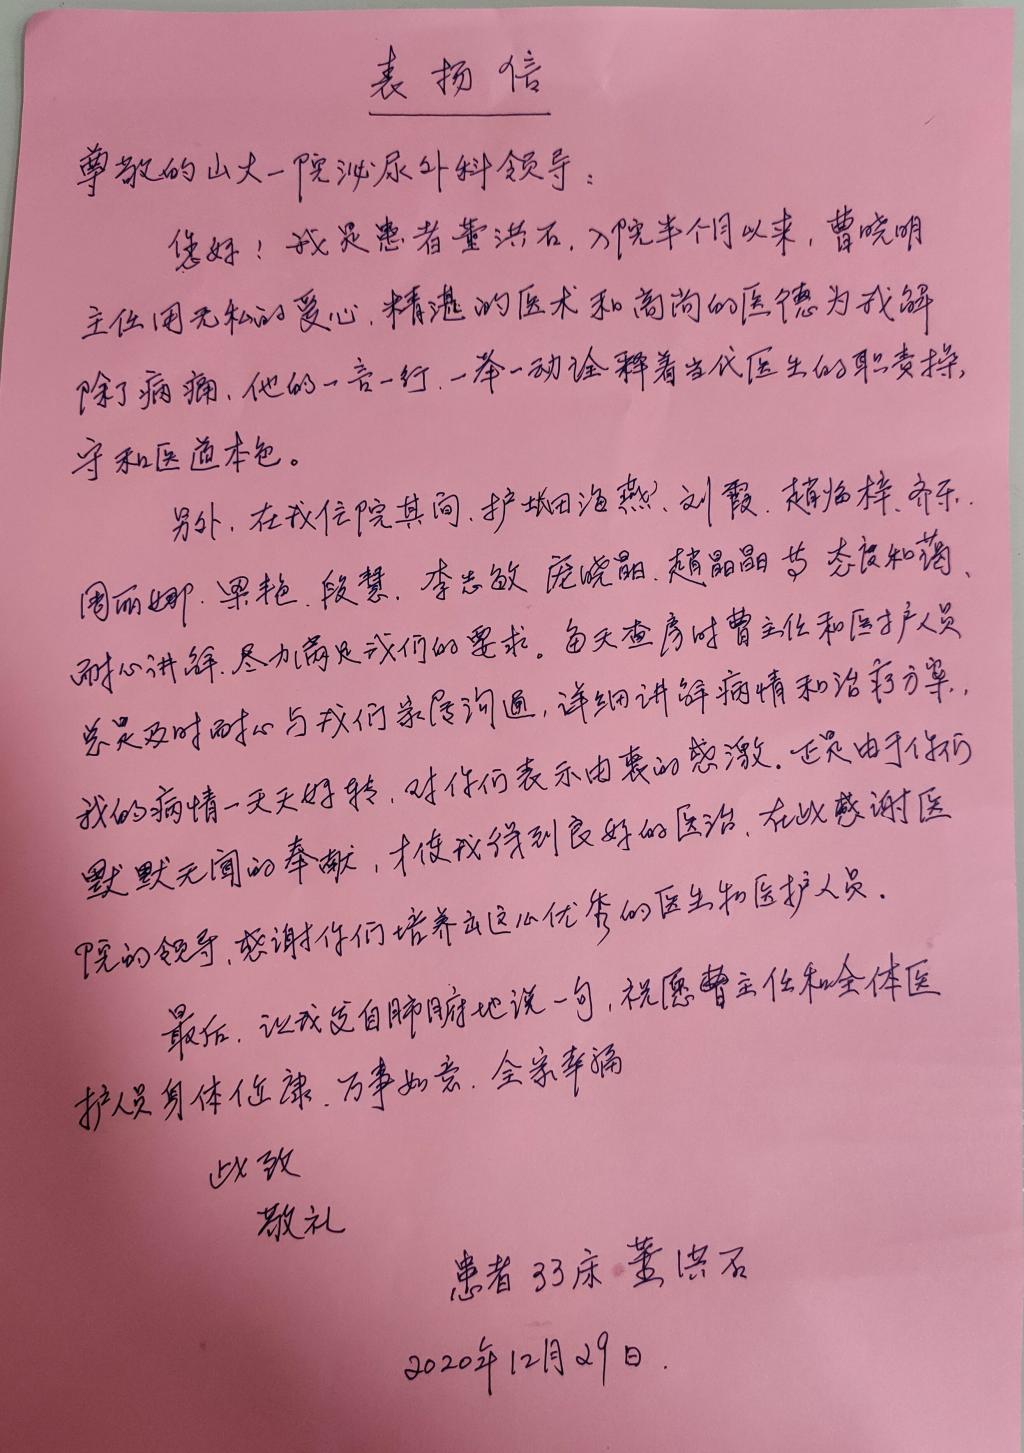 表扬信
尊敬的山大一院泌尿外科领导：
您好！我是患者董洪石，入院半个月以来，曹晓明
主任用无私的爱心，精湛的医术和高尚的医德为我解
除了病痛，他的一言一行，一举一动诠释着当代医生的职责操
守和医道本色。
另外，在我住院其间，护士田海燕、刘霞、赵临梓、乔乐、
周丽娜、梁艳、段慧、李志敏 庞晓晶、赵晶晶等 态度和蔼、
耐心讲解、尽力满足我们的要求。每天查房时曹主任和医护人员
总是及时耐心与我们家属沟通，详细讲解病情和治疗方案，
我的病情一天天好转，对你们表示由衷的感激。正是由于你们
默默无闻的奉献，才使我得到良好的医治，在此感谢医
院的领导，感谢你们培养出这么优秀的医生和医护人员。
最后，让我发自肺腑地说一句，祝愿曹主任和全体医
护人员身体健康、万事如意、全家幸福
此致
敬礼
患者33床 董洪石
2020年12月29日.